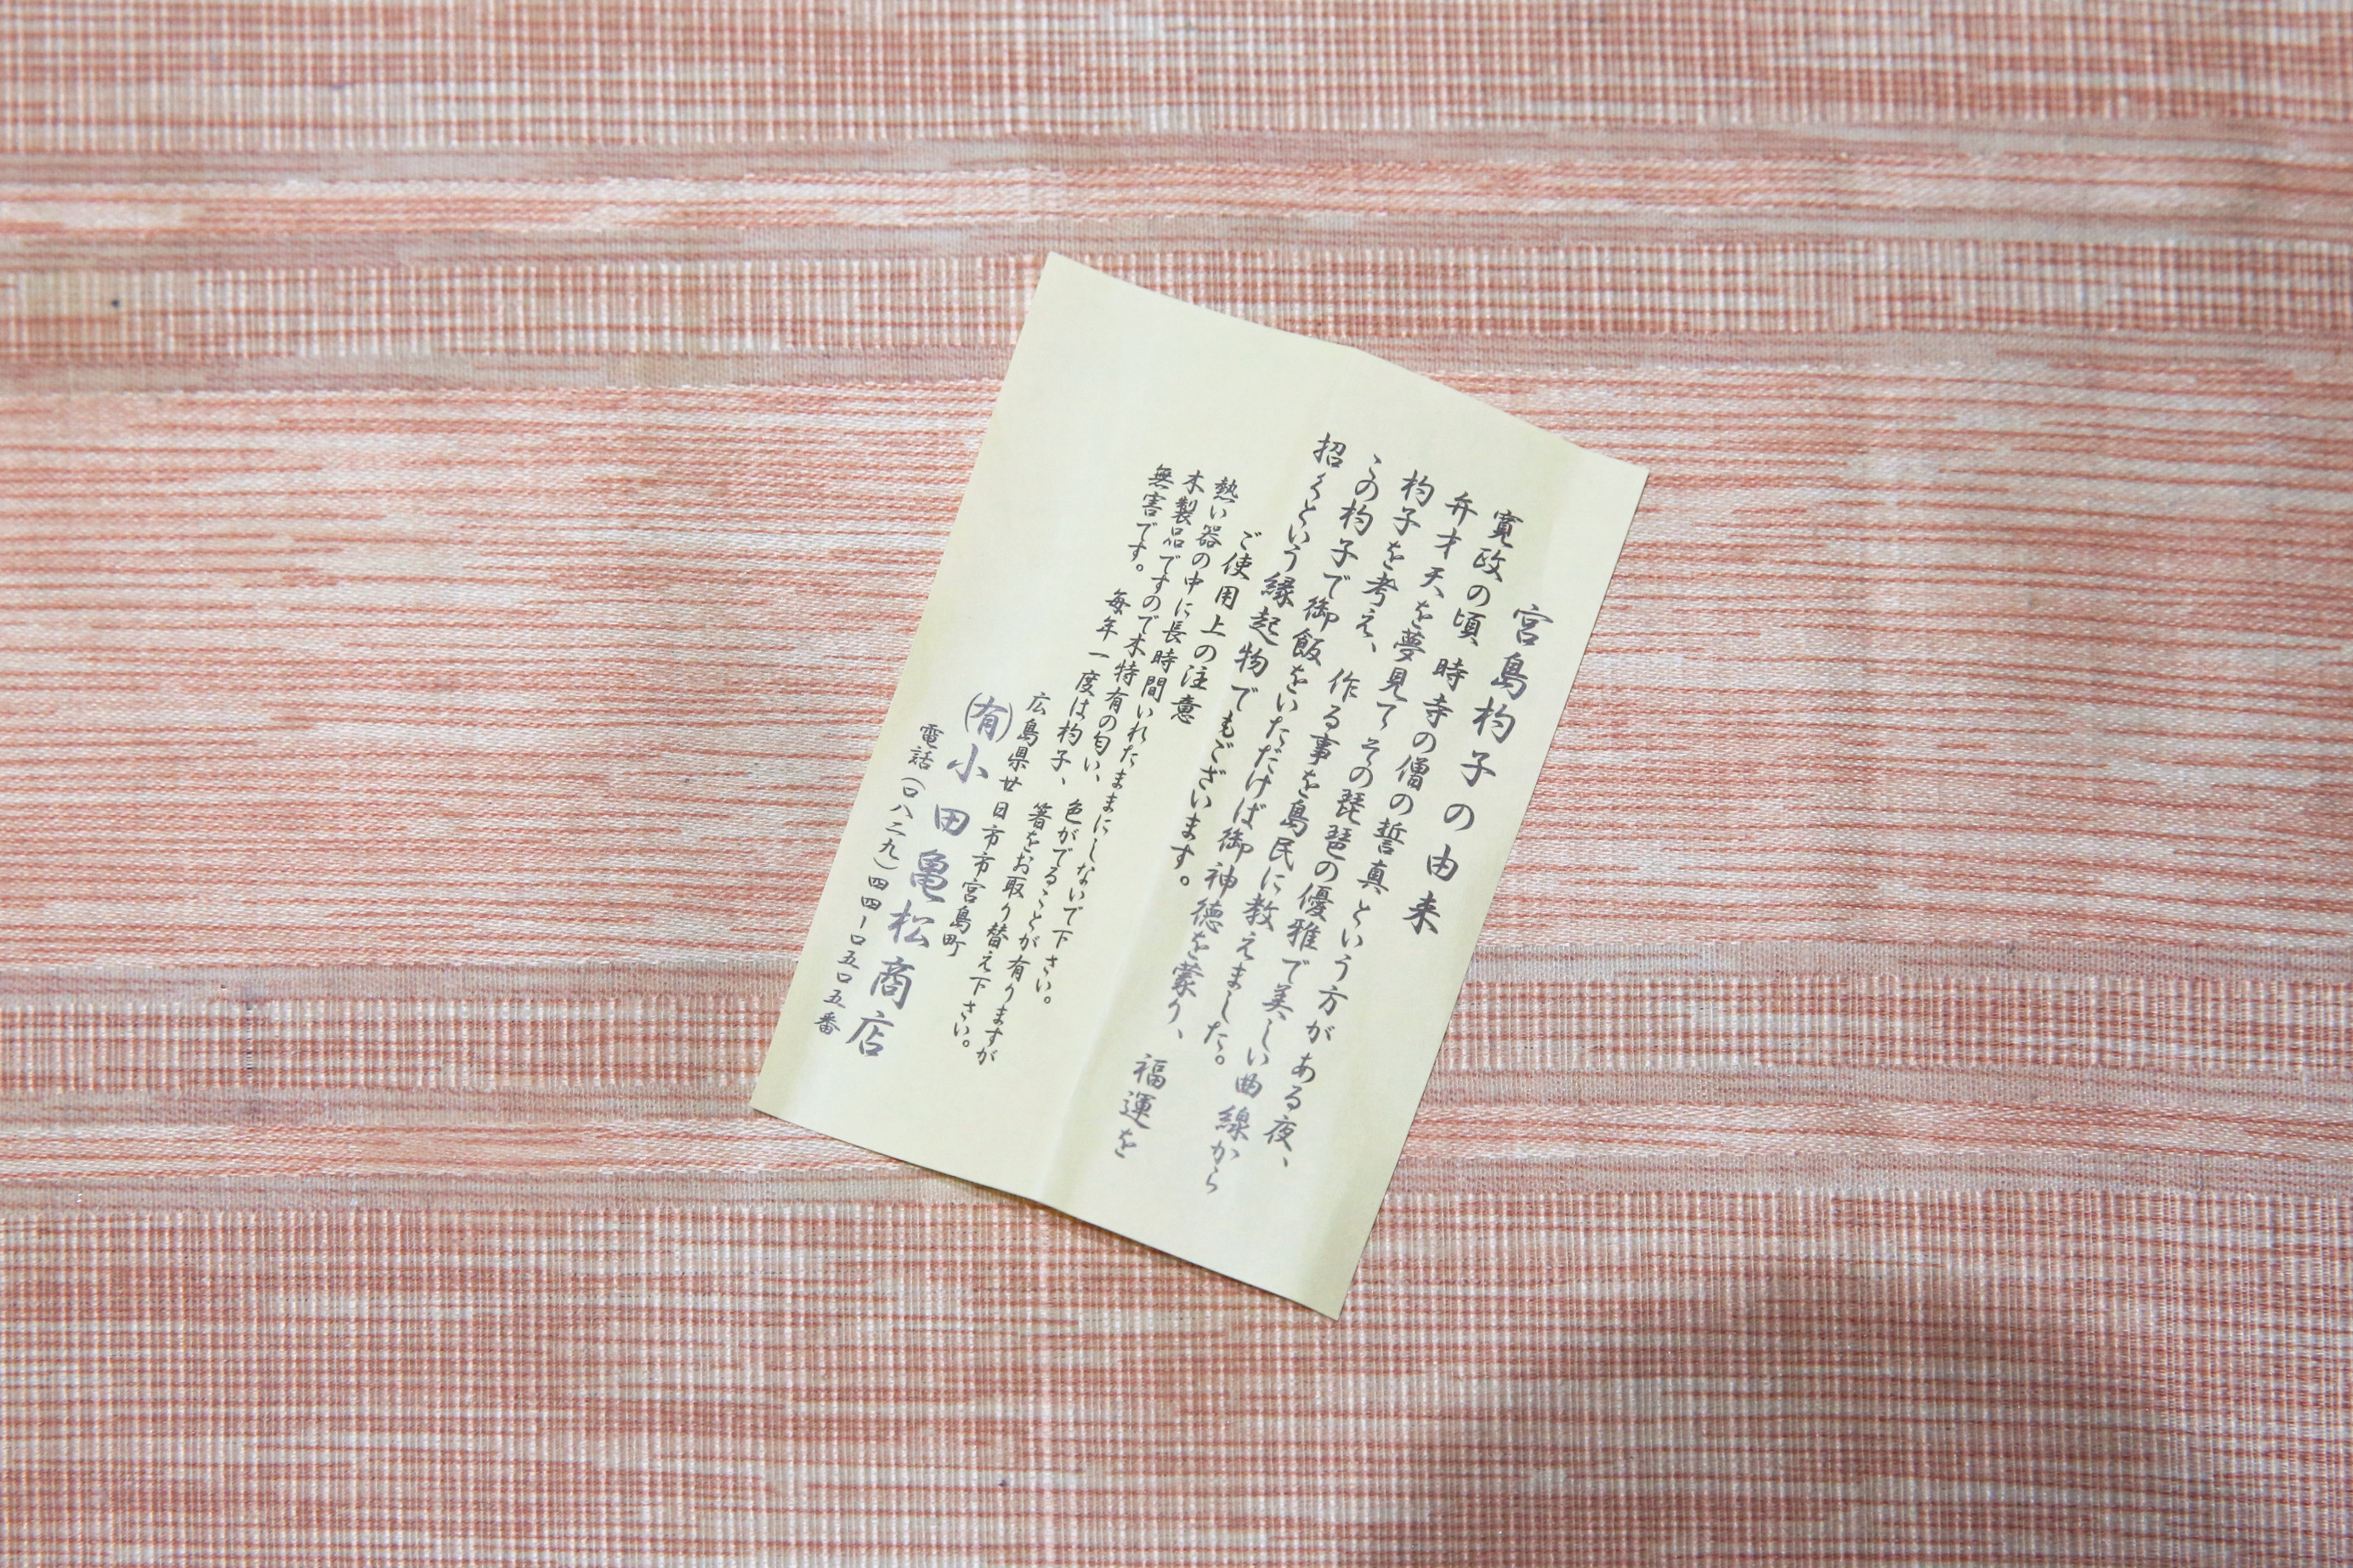 宮島杓子の由来
寛政の頃、時寺の僧の誓真という方がある夜、
弁才天を夢見てその琵琶の優雅で美しい曲線から
杓子を考え、作る事を島民に教えました。
この杓子で御飯をいただけば御神徳を蒙り、福運を
招くという縁起物でもございます。
ご使用上の注意
熱い器の中に長時間いれたままにしないで下さい。
木製品ですので木特有の匂い、色がでることが有りますが
無害です。毎年一度は杓子、箸をお取り替え下さい。
広島県廿日市市宮島町
(有)小田亀松商店
電話(〇八二九)四四ー〇五〇五番